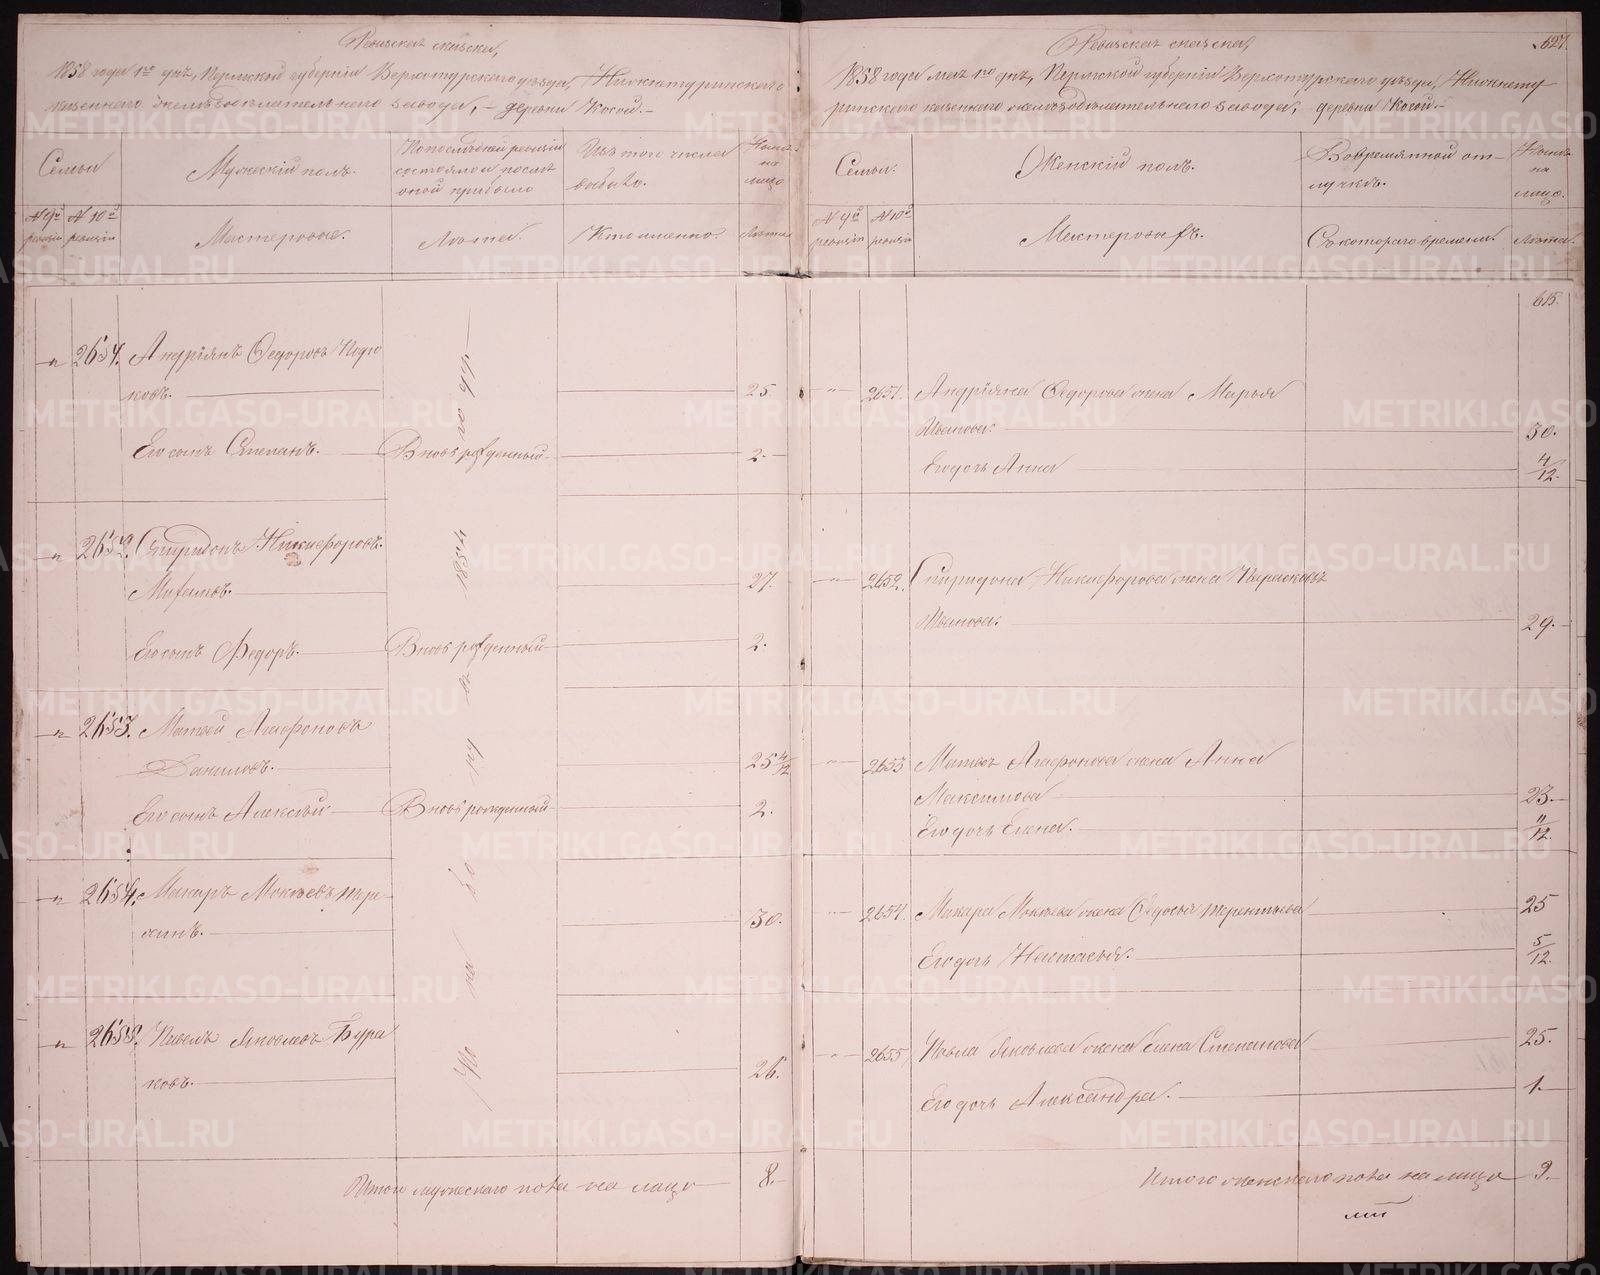 Ревизская сказка,
1858 года 1го дня, Пермской губерніи Верхотурскаго уѣзда, Нижнетуринскаго
казеннаго желѣзодѣлательнаго завода, – деревни Косой. –
Семьи
Мужескій полъ.
По послѣдней ревизіи
состояло и послѣ
оной прибыло
Изъ того числа
выбыло.
Нынѣ
на
лицо
№ 9й
ревизіи
№ 10й
ревизіи
Мастеровые.
Лѣта.
Кто именно.
Лѣта
2651. Андріянъ Ѳедоровъ
ковъ. 25.
Его сынъ Степанъ. Вновь рожденный 2.
2652. Спиридонъ Никифоровъ
27.
Его сынъ Ѳедоръ. Вновь рожденный 2.
2653. Матвей Агафоновъ
Даниловъ. 25 4/12
Его сынъ Алексѣй Вновь рожденный 2.
2654. Макаръ Мокѣевъ
30.
2655. Павелъ Яковлевъ Бура
ковъ. 26.
1854
Итого мужескаго пола на лицо 8.
627.
Ревизская сказка,
1858 года мая 1го дня, Пермской губерніи Верхотурскаго уѣзда, Нижнету
ринскаго казеннаго желѣзодѣлательнаго завода, деревни Косой. –
Семьи.
Женскій полъ.
Во временной от-
лучкѣ.
Нынѣ
на
лицо.
№ 9й
ревизіи
№ 10й
ревизіи
Мастероваго
Съ котораго времени.
Лѣта.
615.
2651. Андріяна Ѳедорова жена Марья
Иванова. 30.
Его дочь Анна 4/12.
2652. Спиридона Никифорова жена Парасковья
Иванова. 29.
2653 Матвея Агафонова жена Анна
Максимова 23.
Его дочь Елена. 11/12.
2654. Макара Мокѣева жена Ѳедосья Терентьева 25
Его дочь Настасья. 5/12.
2655 Павла Яковлева жена Елена Степанова 25.
Его дочь Александра. 1.
Итого женскаго пола на лицо 9.